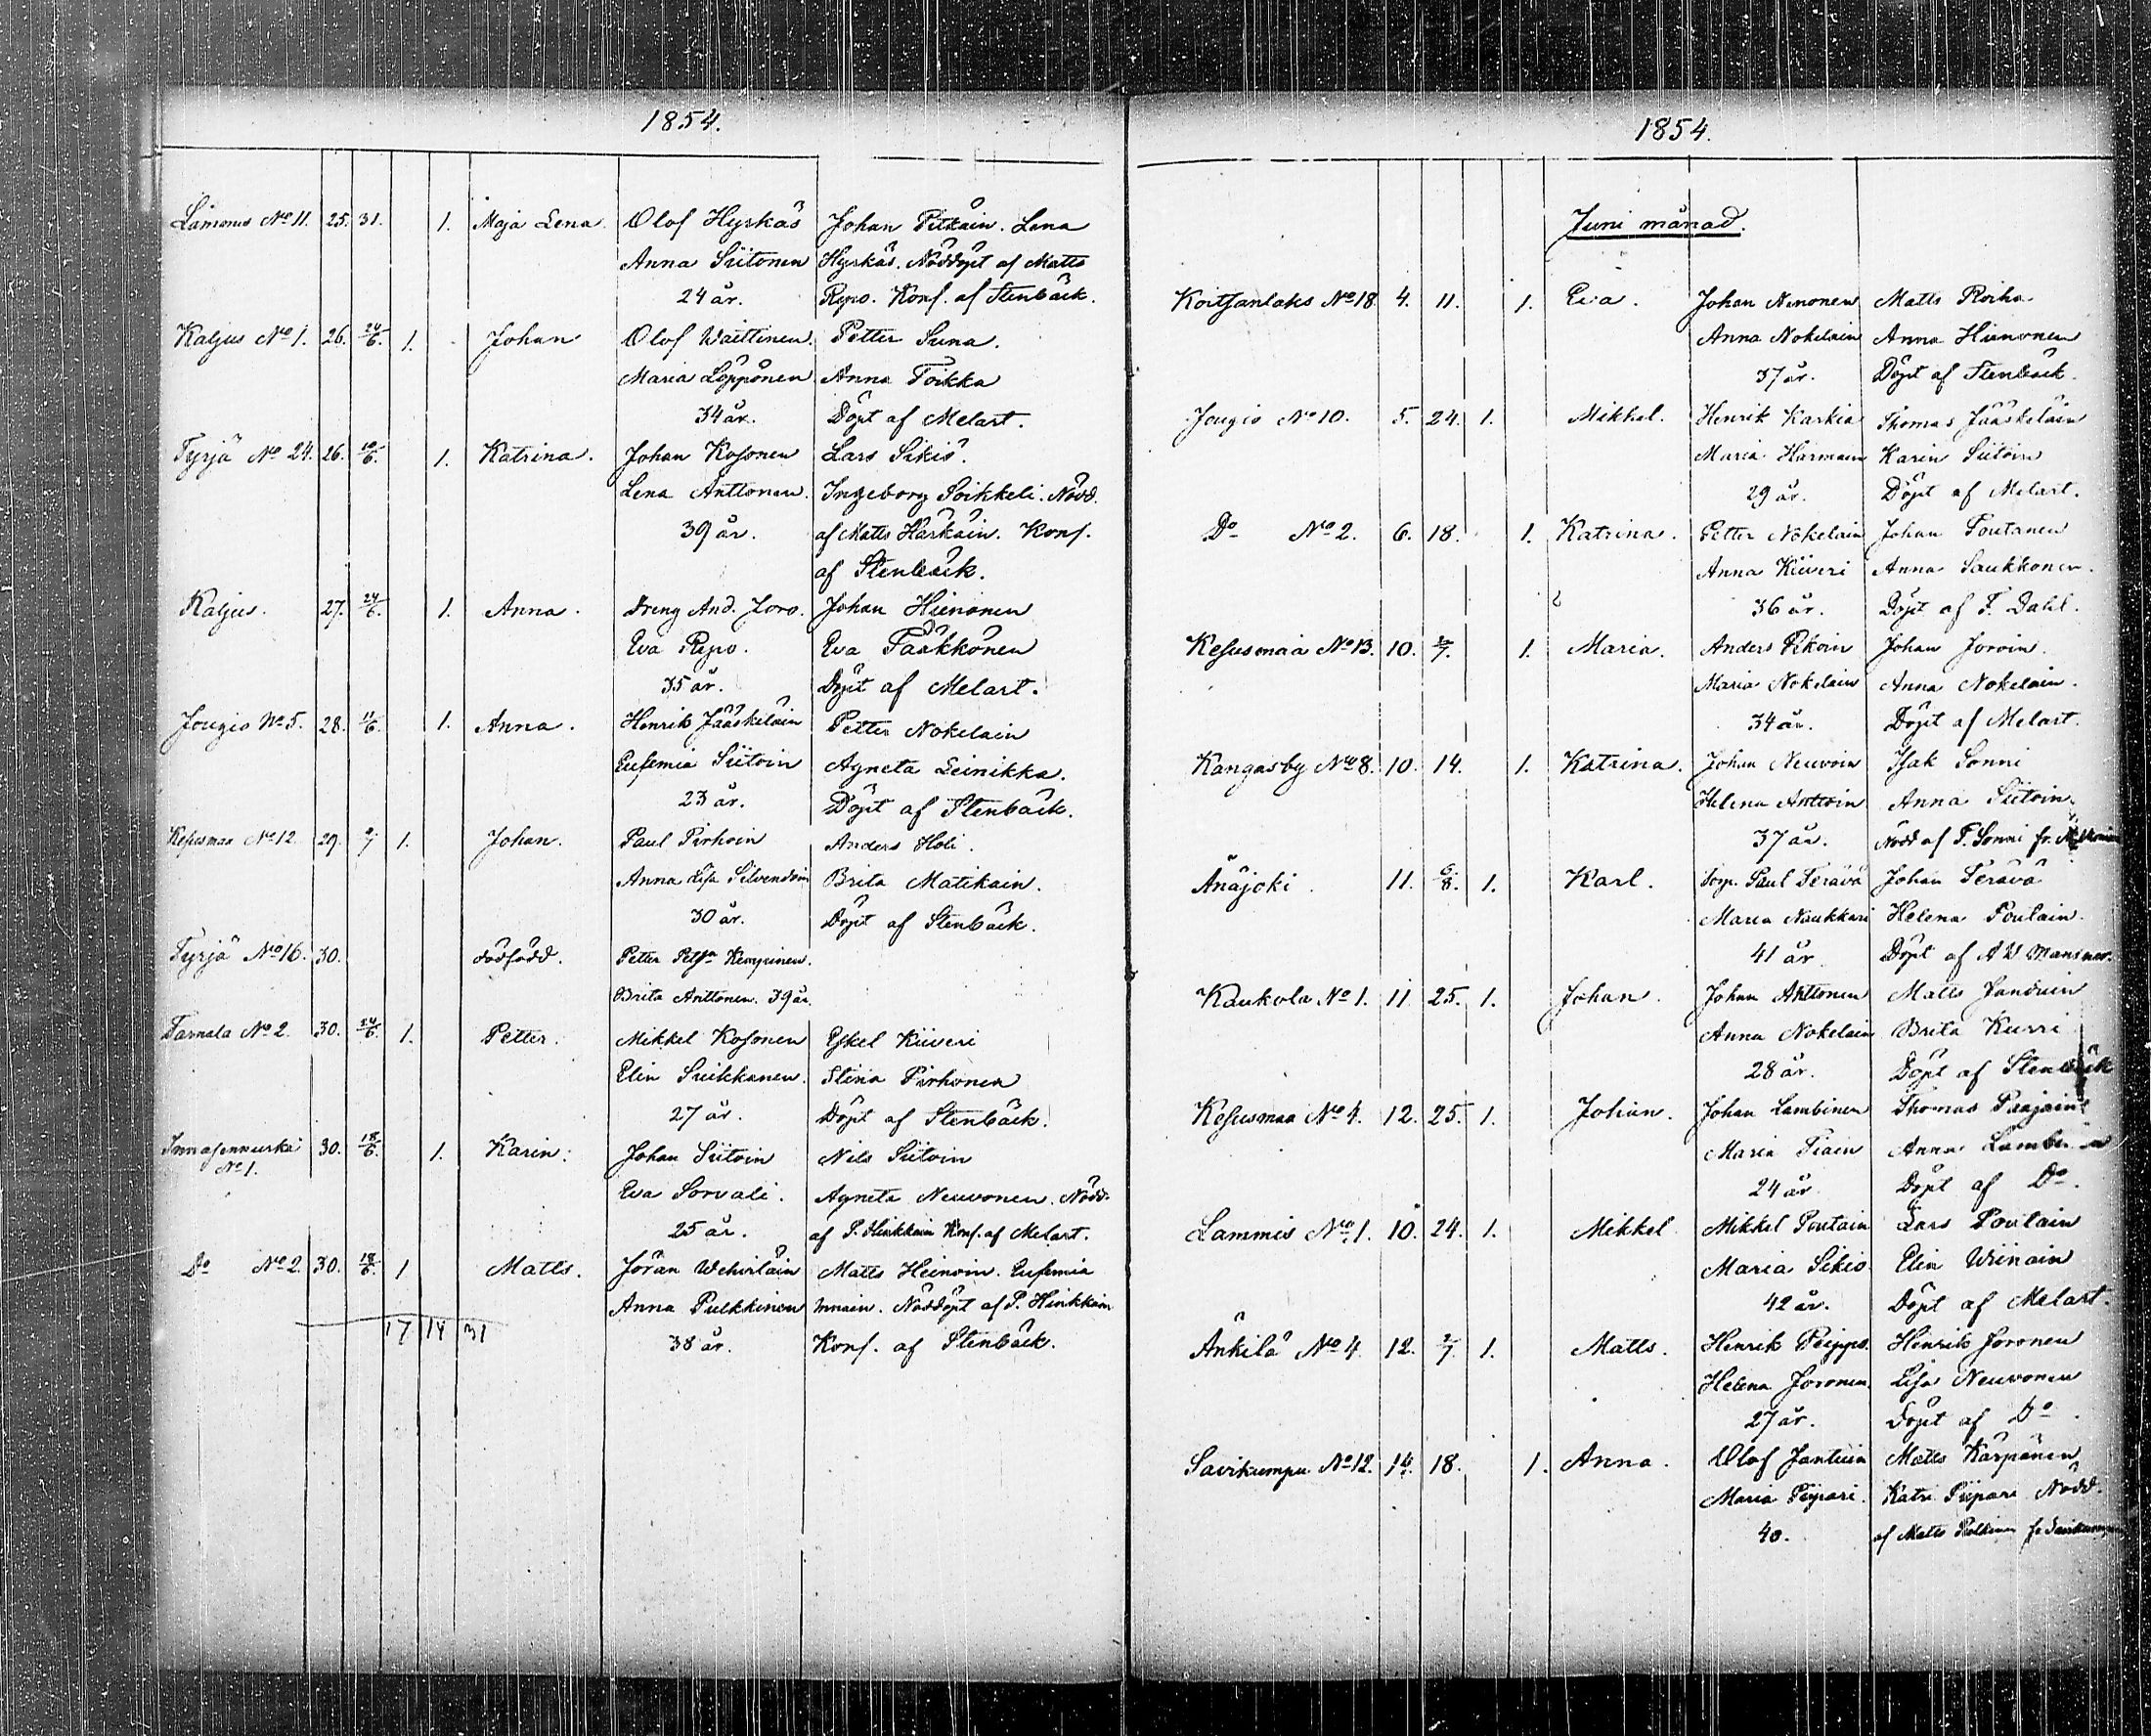 1854.
Lämonus No 11. 25. 31. 1. Maja Lena. Olof Hyrkäs Johan Pitkäin. Lena
Anna Siitonen Hyrkäs. Nöddöpt af Matts
24 år. Repo. Konf. af Stenbäck.
Kaljus No 1. 26. 24/6. 1. Johan Olof Waittinen. Petter Suna.
Maria Löppönen Anna Toikka
34 år. Döpt af Melart.
Tyrjä No 24. 26. 10/6. 1. Katrina. Johan Kosonen Lars Sikiö.
Lena Anttonen. Ingeborg Poikkeli. Nödd.
39 år. af Matts Härkäin. Konf.
af Stenbäck.
Kaljus. 27. 24/6. 1. Anna. Dreng And. Joro. Johan Hienonen
Eva Repo. Eva Pääkkönen
35 år. Döpt af Melart.
Jougio No 5. 28. 11/6. 1. Anna. Henrik Jääskeläin Petter Nokelain
Eufemia Siitoin Agneta Leinikka.
23 år. Döpt af Stenbäck.
Kesusmaa No 12. 29. 1. Johan. Paul Pirhoin Anders Holi.
Anna Lisa Silvendoin Brita Matikain.
30 år. Döpt af Stenbäck.
Tyrjä No 16. 30. dödfödd. Petter Kempinen.
Brita Anttonen. 39 år.
Tarnala No 2. 30. 24/6. 1. Petter. Mikkel Kosonen Eskel Kiiveri
Elin Suikkanen. Stina Pirhonen
27 år. Döpt af Stenbäck.
30. 18/6. 1. Karin. Johan Siitoin Nils Siitoin
No 1.
Eva Sorvali. Agneta Neuvonen. Nödd.
25 år. af P. Hinkkain Konf. af Melart.
Do No 2. 30. 18/6. 1 Matts. Jöran Wehviläin Matts Heinoin. Eufemia
Anna Pulkkinen Innain. Nöddöpt af P. Hinkkain
17 14 31 38 år. Konf. af Stenbäck.
1854.
Juni månad.
Koitsanlaks No 18 4. 11. 1. Eva. Johan Nenonen Matts Roiha
Anna Nokelain Anna Hienonen
37 år. Döpt af Stenbäck.
Jougio No 10. 5. 24. 1. Mikkel. Henrik Karkia Thomas Jääskeläin
Maria Härmäin Karin Siitoin
29 år. Döpt af Melart.
Do No 2. 6. 18. 1. Katrina. Petter Nokelain Johan Poutanen
Anna Kiiveri Anna Saukkonen.
36 år. Döpt af F. Dahl.
Kesusmaa No 13. 10. 2/7. 1. Maria. Anders Johan Joroin.
Maria Nokelain Anna Nokelain.
34 år. Döpt af Melart.
Kangasby No 8. 10. 14. 1. Katrina. Johan Neuvoin Isak Sonni
Helena Anttoin Anna Siitoin
37 år. Nödd af T. Sonni fr.
Änäjoki. 11. 6/8. 1. Karl. Torp. Paul Terävä Johan Terävä
Maria Naukkari Helena Poutain.
41 år Döpt af A W Mansner.
Kaukola No 1. 11 25. 1. Johan. Johan Anttonen Matts Jantuin
Anna Nokelain Brita Kurri
28 år. Döpt af Stenbäck
Kesusmaa No 4. 12. 25. 1. Johan. Johan Lambinen Thomas Paajain
Maria Tiain Anna
24 år Döpt af Do.
Lammis No 1. 10. 24. 1. Mikkel Mikkel Poutain Lars Poutain
Maria Sikiö Elin Wiinain
42 år. Döpt af Melart.
Änkilä No 4. 12. 2/7. 1. Matts. Henrik Peippo. Henrik Joronen
Helena Joronen. Lisa Neuvonen
27 år. Döpt af Do.
Savikumpu No 12. 14. 18. 1. Anna. Olof Jantuin Matts Kärpänen
Maria Piipari. Katri Piipari Nödd.
40. af Matts